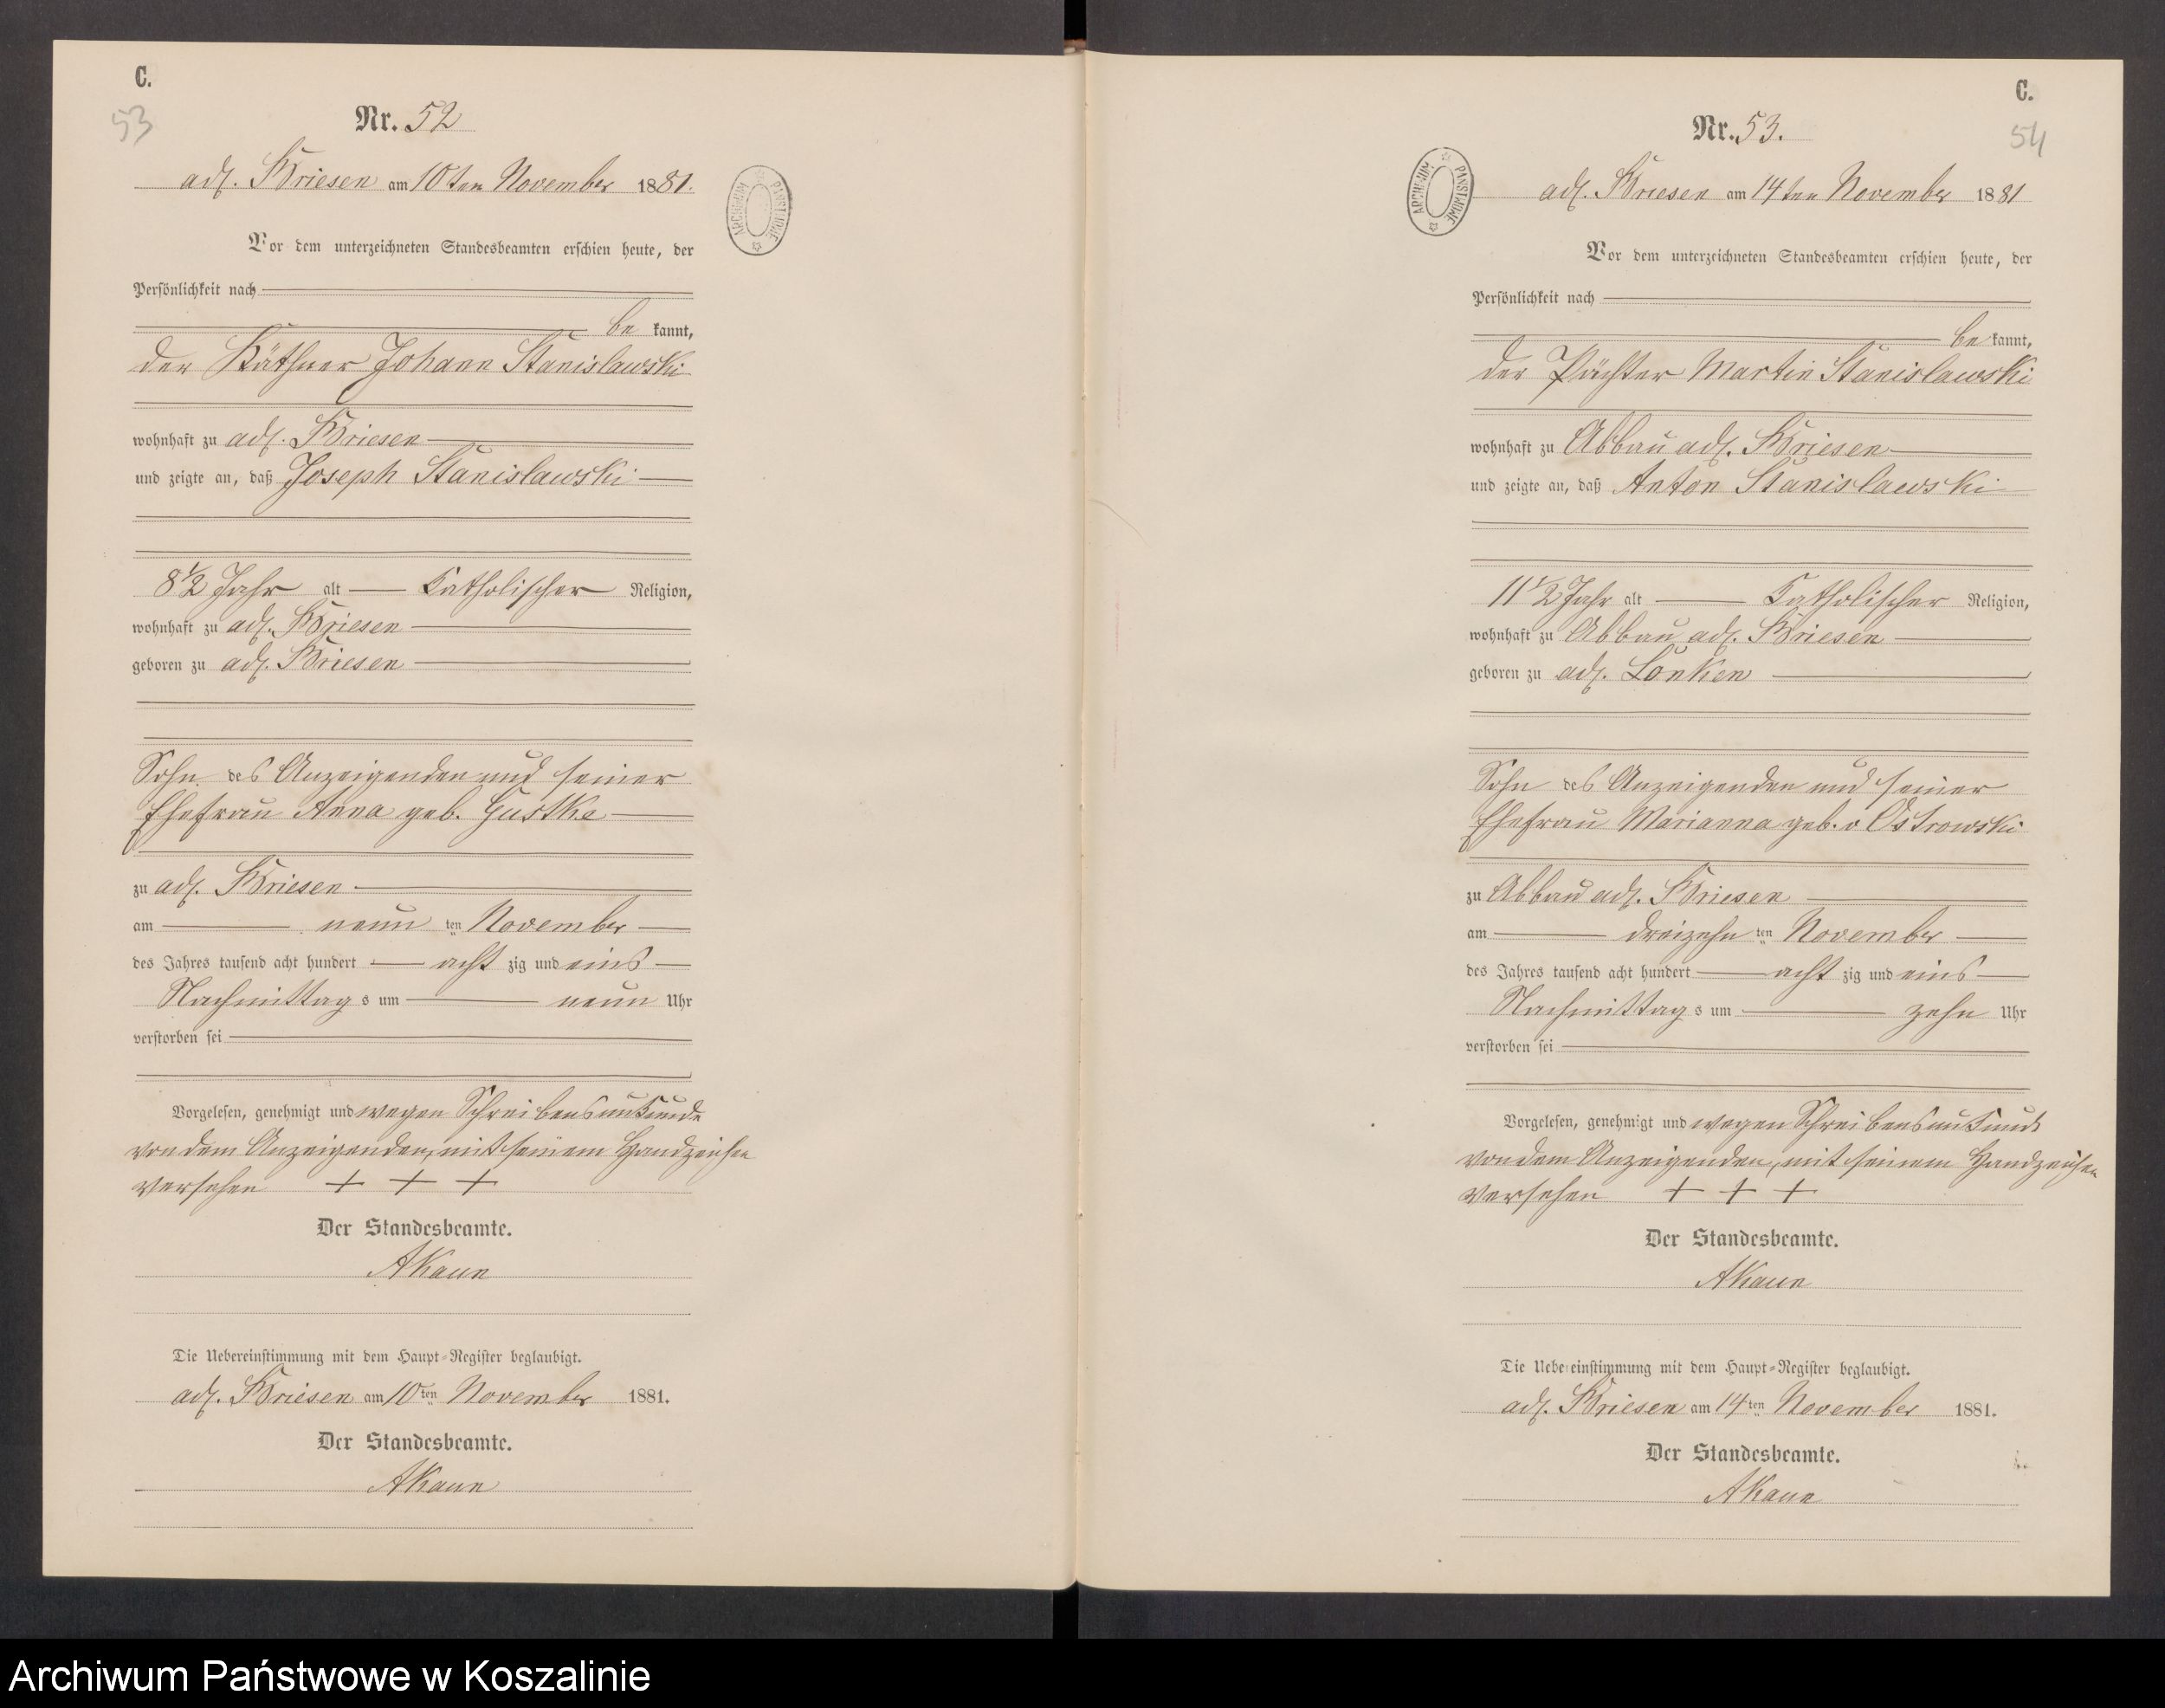 C.
53
Nr. 52
adl. Briesen am 10ten November 1881.
ARCHIWUM PAŃSTWOWE
Vor dem unterzeichneten Standesbeamten erschien heute, der
Persönlichkeit nach
be kannt,
der Käthner Johann Stanislawski
wohnhaft zu adl. Briesen
und zeigte an, daß Joseph Stanislawski
8 1/2 Jahr alt Katholischer Religion,
wohnhaft zu adl. Briesen
geboren zu adl. Briesen
Sohn des Anzeigenden und seiner
Ehefrau Anna geb. Gustke
zu adl. Briesen
am neun ten November
des Jahres tausend acht hundert acht zig und eins
Nachmittag s um neun Uhr
verstorben sei
Vorgelesen, genehmigt und wegen Schreibensunkunde
von dem Anzeigenden, mit seinem Handzeichen
versehen + + +
Der Standesbeamte.
AKaun
Die Uebereinstimmung mit dem Haupt-Register beglaubigt.
adl. Briesen am 10ten November 1881.
Der Standesbeamte.
AKaun
C.
54
Nr. 53.
adl. Briesen am 14ten November 1881
ARCHIWUM PAŃSTWOWE
Vor dem unterzeichneten Standesbeamten erschien heute, der
Persönlichkeit nach
be kannt,
der Pächter Martin Stanislawski
wohnhaft zu Abbau adl. Briesen
und zeigte an, daß Anton Stanislawski
11 1/2 Jahr alt Katholischer Religion,
wohnhaft zu Abbau adl. Briesen
geboren zu adl. Lonken
Sohn des Anzeigenden und seiner
Ehefrau Marianna geb. v Ostrowski
zu Abbau adl. Briesen
am dreizehn ten November
des Jahres tausend acht hundert acht zig und eins
Nachmittag s um zehn Uhr
verstorben sei
Vorgelesen, genehmigt und wegen Schreibensunkunde
von dem Anzeigenden, mit seinem Handzeichen
versehen + + +
Der Standesbeamte.
AKaun
Die Uebereinstimmung mit dem Haupt-Register beglaubigt.
adl. Briesen am 14ten November 1881.
Der Standesbeamte.
AKaun
Archiwum Państwowe w Koszalinie